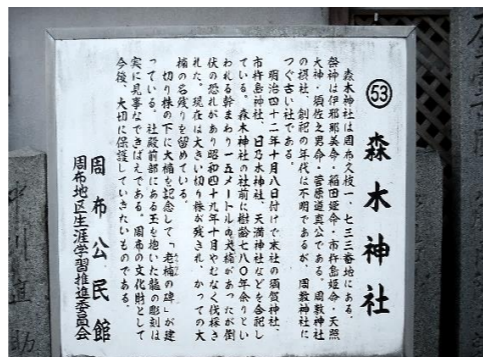 ㊼ 森木神社
森木神社は周布久枝一、七三三番地にある。
祭神は伊邪那美命・稲田姫命・市杵島姫命・天照
大神・須佐之男命・菅原道真公である。周敷神社
の摂社、創祀の年代は不明であるが、周敷神社に
つぐ古い社である。
明治四十二年十月八日付けで末社の須賀神社、
市杵島神社、日乃水神社、天満神社などを合祀し
ている。森木神社の社前に樹齢七八〇年余りとい
われる幹まわり一五メートルの大楠があったが倒
伏の恐れがあり昭和四十九年十月やむなく伐採さ
れた。現在は大きい切り株が残され、かつての大
楠の名残りを留めている。
切り株の下に大楠を記念して「老楠の碑」が建
っている。社殿前部にある玉を抱いた龍の彫刻は
実に見事なできばえである。周布の文化財として
今後、大切に保護していきたいものである。
周布公民館
周布地区生涯学習推進委員会
中川道助